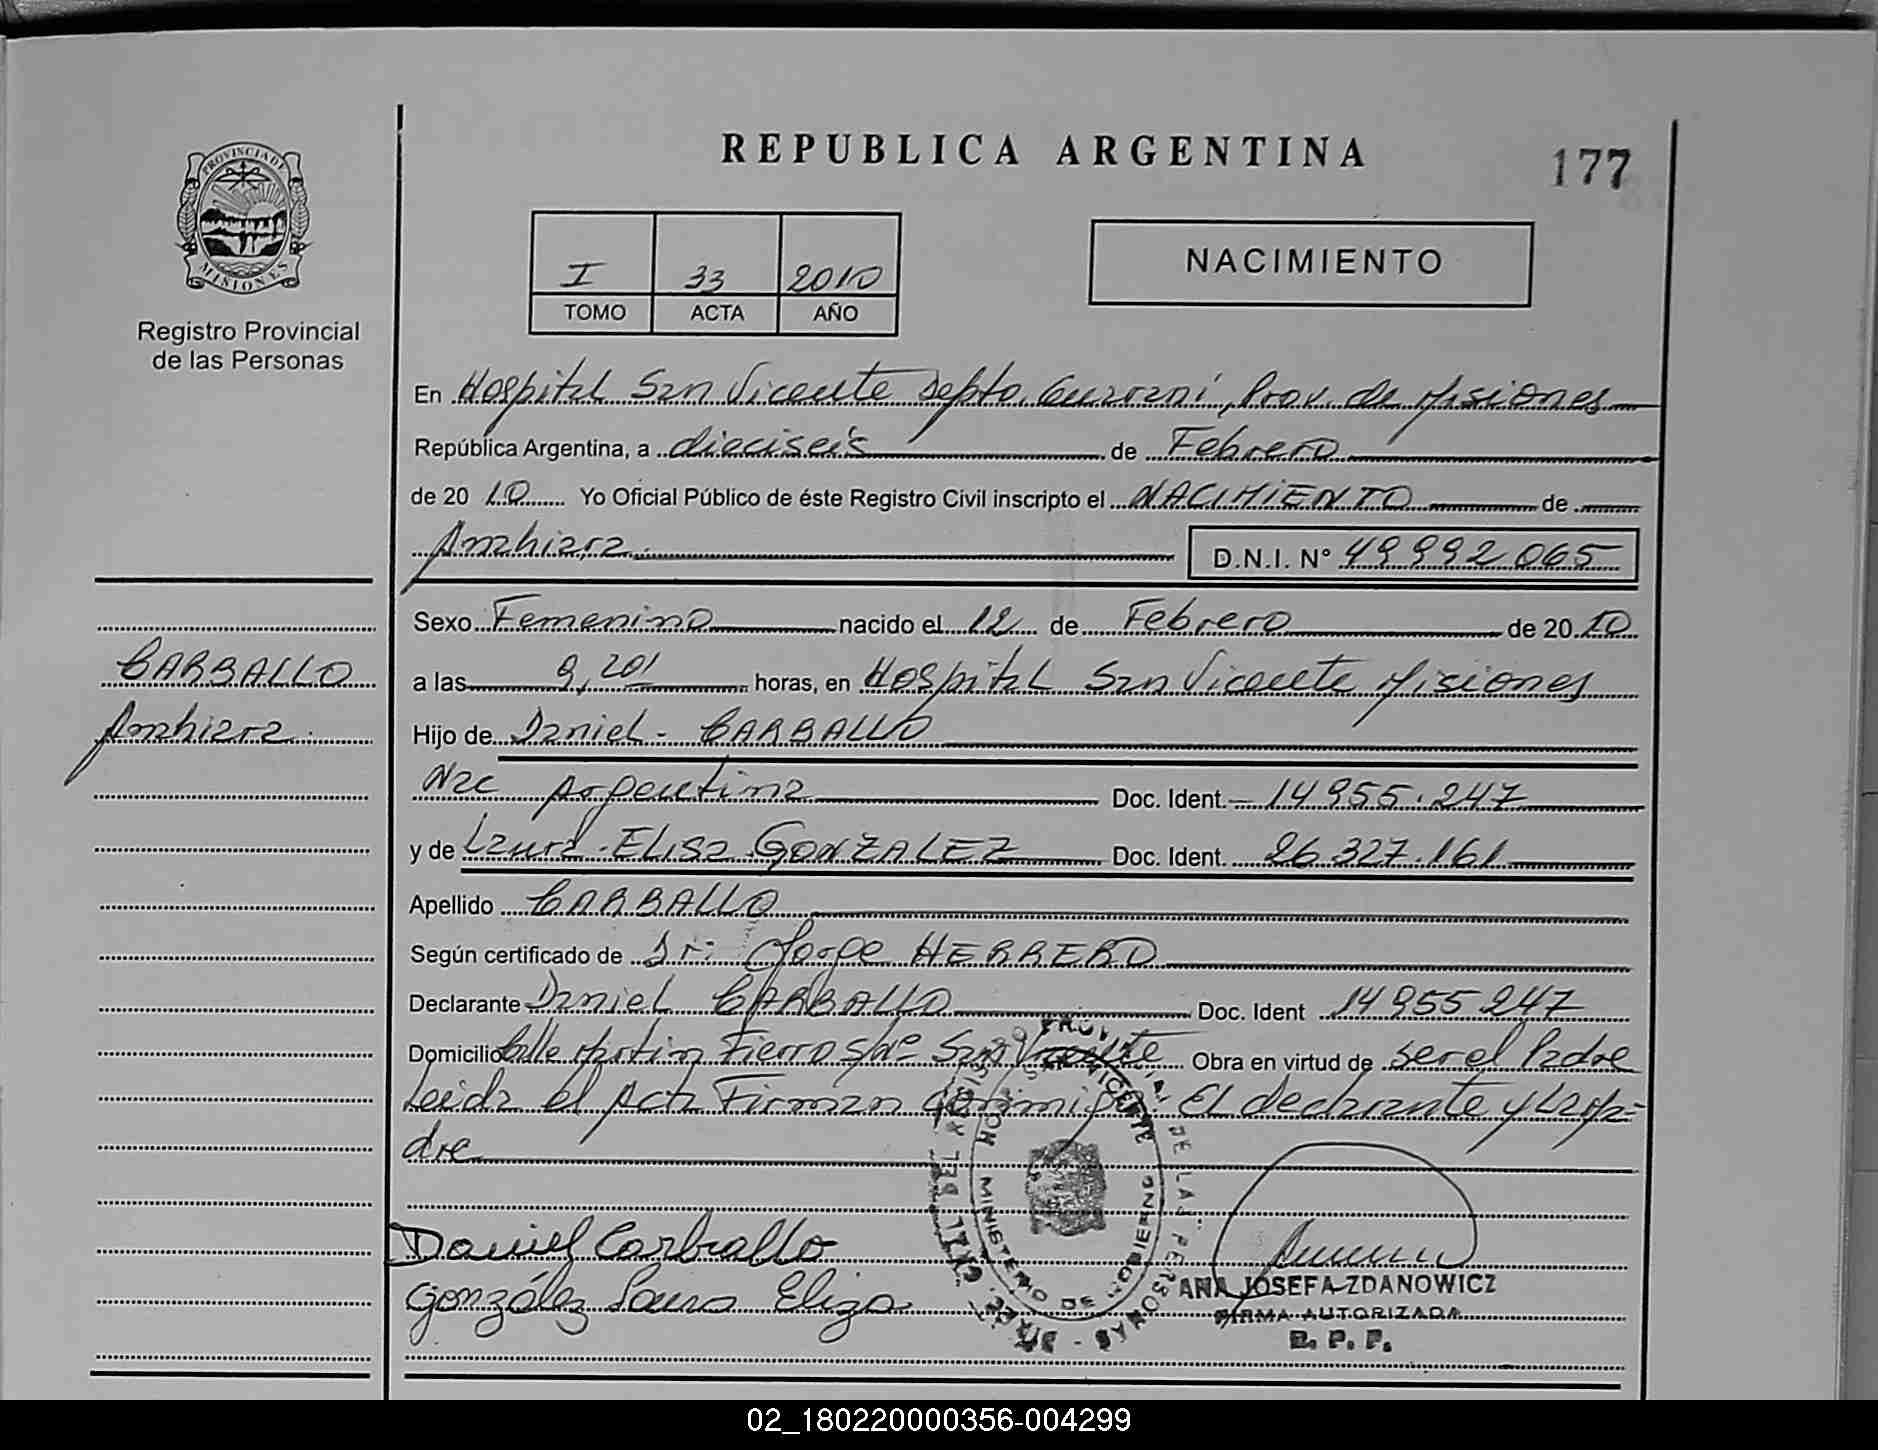 REPUBLICA ARGENTINA
177
PROVINCIA DE
MISIONES
Registro Provincial
de las Personas
I 33 2010
TOMO ACTA AÑO
NACIMIENTO
En Hospital San Vicente Depto. Guarani, Prov. de Misiones
República Argentina, a dieciseis de Febrero
de 20 10 Yo Oficial Público de éste Registro Civil inscripto el NACIMIENTO de
Amahiara D.N.I. N° 49992065
Sexo Femenino nacido el 12 de Febrero de 20 10
CARBALLO
Amahiara
a las 9,20 horas, en Hospital San Vicente Misiones
Hijo de Daniel - CARBALLO
Nac Argentina Doc. Ident. 14955.247
y de Laura ELisa GONZALEZ Doc. Ident. 26.327.161
Apellido CARBALLO
Según certificado de Dr: Jorge HERRERO
Declarante Daniel CARBALLO Doc. Ident 14955247
Domicilio Calle Martin Fierro s/n° San Vicente Obra en virtud de ser el Padre
Leida el Acta Firman conmigo: El declarante y La Ma-
dre
HOSP. SAN VICENTE
MINISTERIO DE GOBIERNO
DE LAS PERSONAS
Daniel Carballo
González Laura Eliza
ANA JOSEFA ZDANOWICZ
FIRMA AUTORIZADA
R. P. P.
02_180220000356-004299